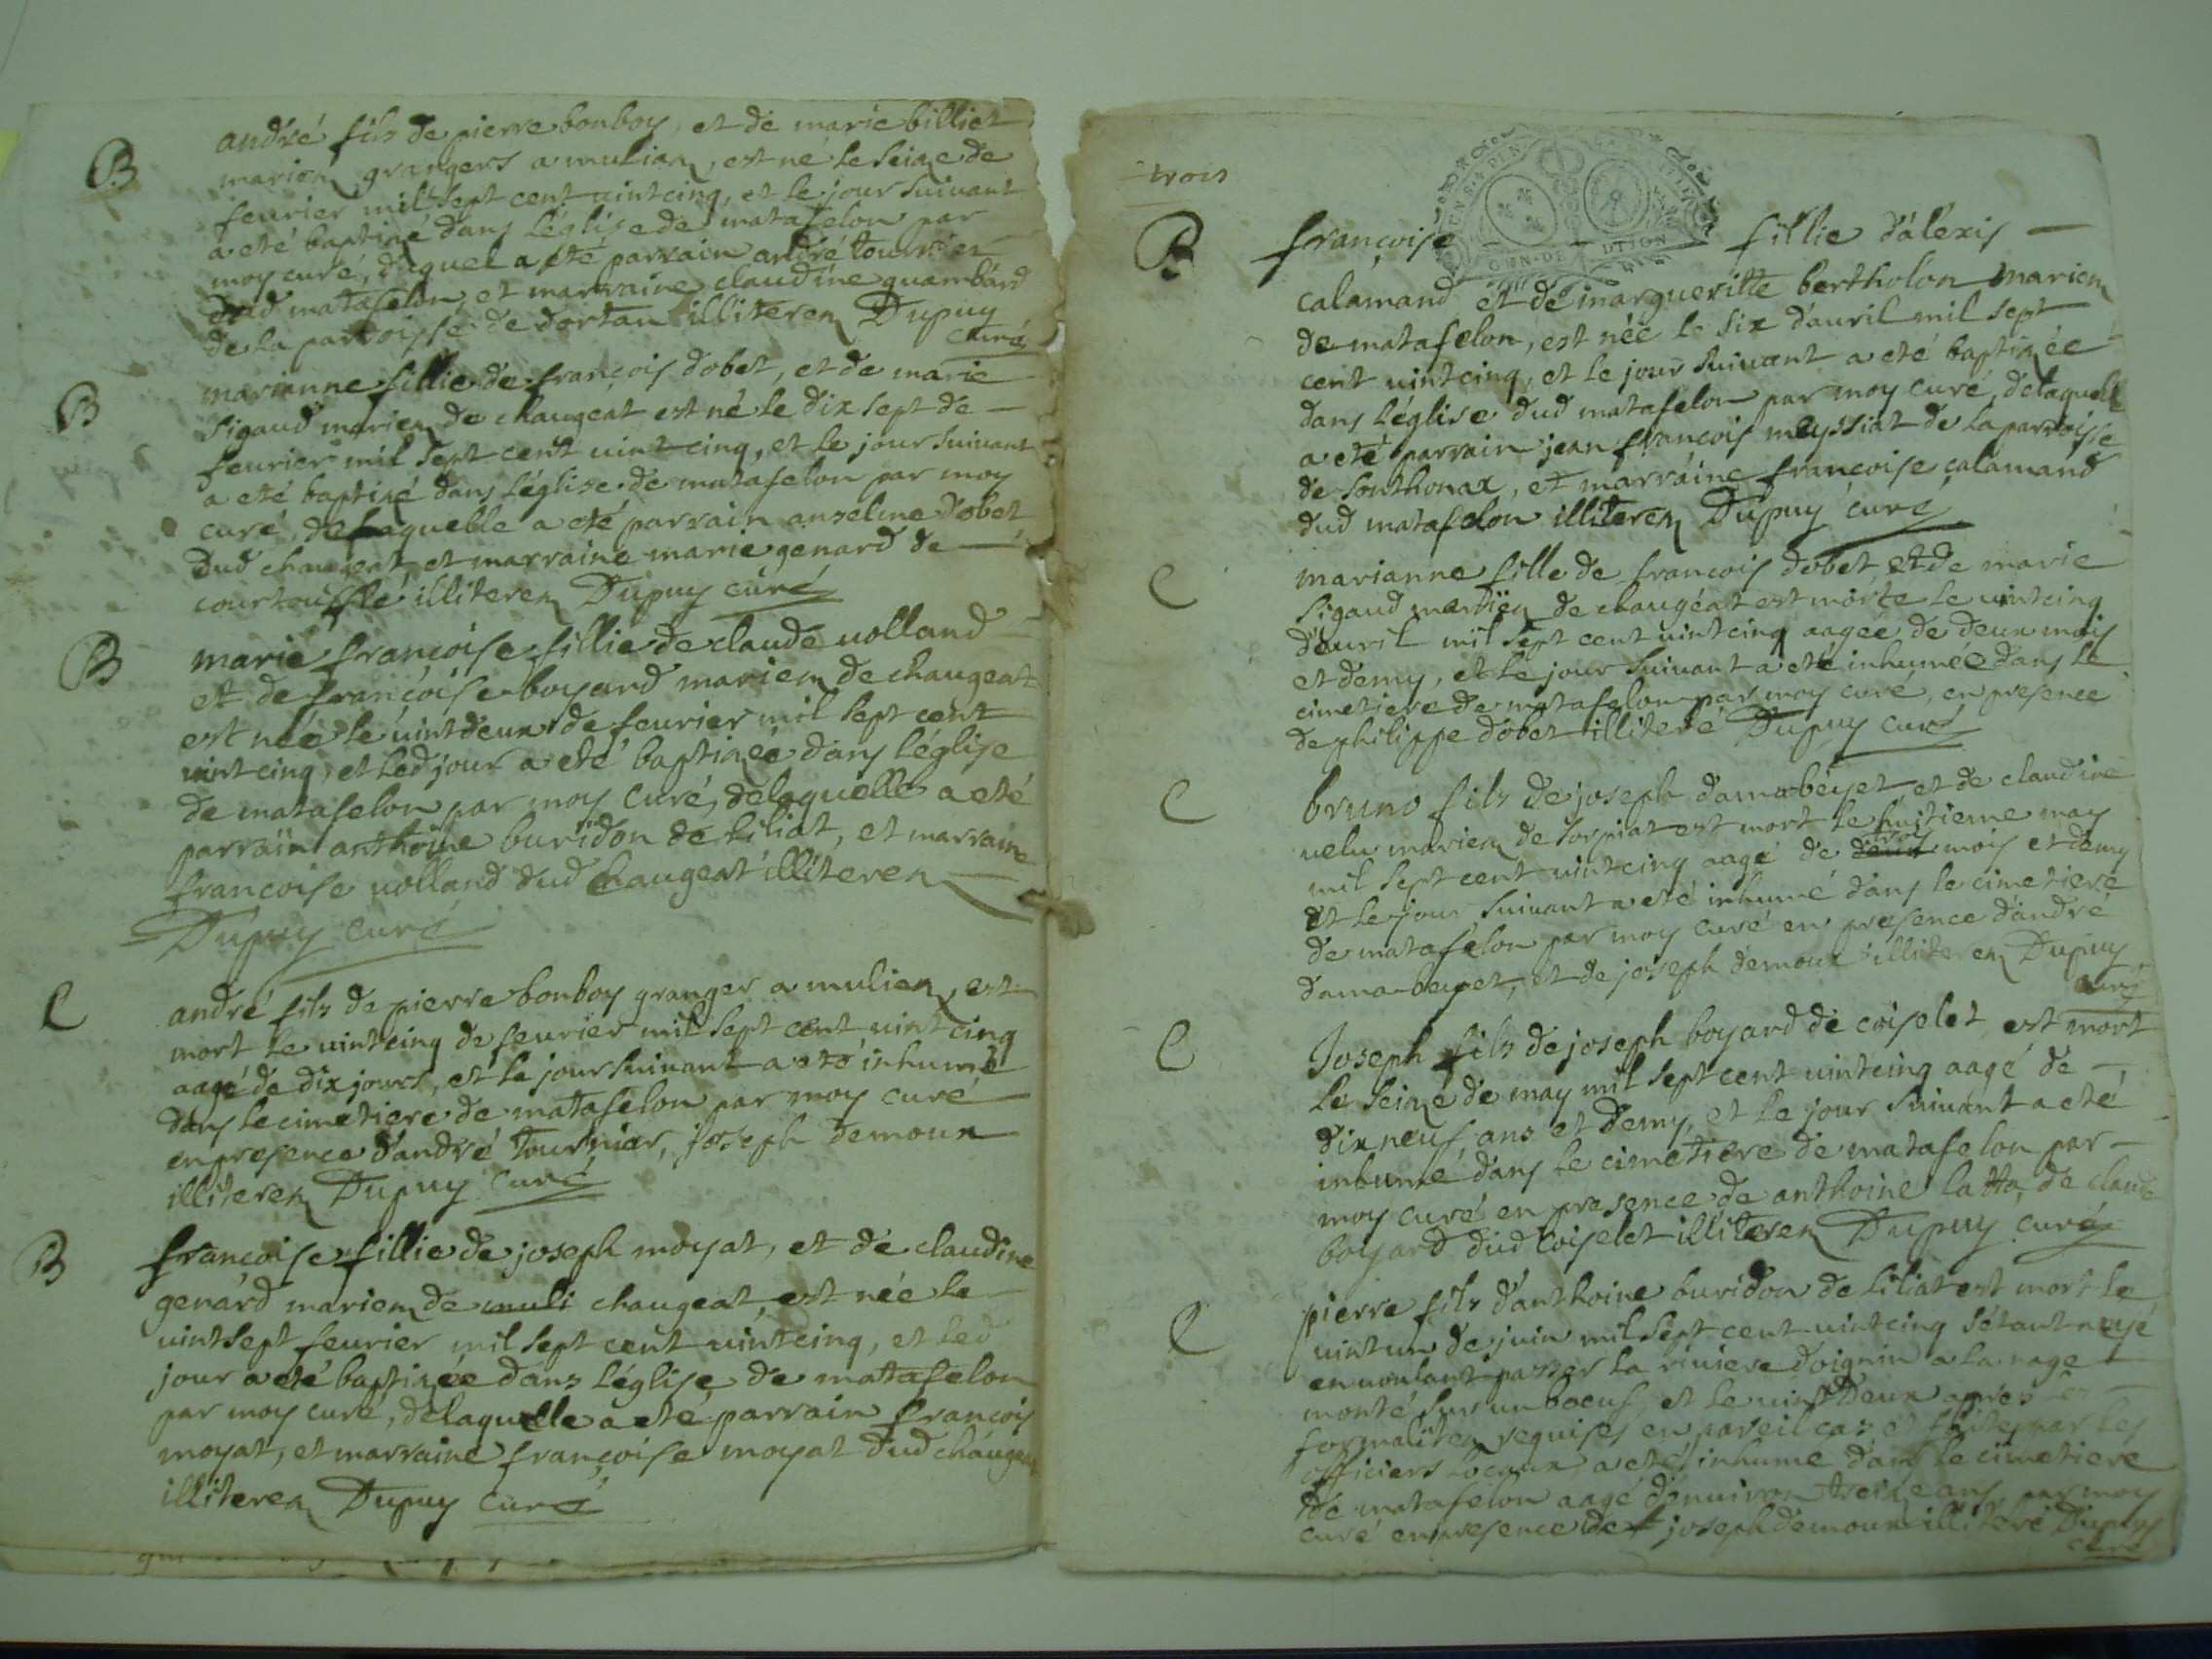 B
andré fils de pierre bonboy, et de marie billiet
mariez grangers a muliaz, est né le seize de
feurier mil sept cent uintcinq, et le jour suiuant
a eté baptizé dans l'église de matafelon par
moy curé, duquel a eté parrain andré tournier
dud matafelon, et marraine claudine quambard
de la parroisse de dortan illiterez Dupuy
curé
B
marianne fillie de françois dobet, et de marie
sigaud mariez de chaugeat est né le dix sept de
feurier mil sept cent uintcinq, et le jour suiuant
a eté baptizé dans l'église de matafelon par moy
curé, de laquelle a eté parrain anselme dobet
dud chaugeat et marraine marie genard de
courtouffle illiterez Dupuy curé
B
marie françoise fillie de claude uolland
et de françoise boyard mariez de chaugeat
est néé le uintdeux de feurier mil sept cent
uintcinq, et led jour a eté baptizéé dans l'église
de matafelon par moy curé, delaquelle a eté
parrain anthoine buridon de siliat, et marraine
francoise uolland dud chaugeat illiterez
Dupuy curé
C
andré fils de pierre bonboy granger a muliaz, est
mort le uintcinq de feurier mil sept cent uintcinq
aagé de dix jours, et le jour suiuant a eté inhumé
dans le cimetiere de matafelon par moy curé
en presence d'andré tournier, joseph demoux
illiterez Dupuy curé
B
francoise fillie de joseph moyat, et de claudine
genard mariez de muli chaugeat, est née le
uintsept feurier mil sept cent uintcinq, et led
jour a eté baptizée dans l'église de matafelon
par moy curé, delaquelle a eté parrain françois
moyat, et marraine françoise moyat dud chaugeat
illiterez Dupuy curé
trois
GEN · DE
B
françoise fillie d'alexis
calamand et de margueritte bertholon mariez
de matafelon, est née le six d'auril mil sept
cent uintcinq, et le jour suiuant a eté baptizée
dans l'église dud matafelon par moy curé, delaquelle
a eté parrain jean françois meyssiat de la parroisse
de sonthonax, et marraine françoise calamand
dud matafelon illiterez Dupuy curé
C
marianne fille de françois dobet, et de marie
sigaud mariez de chaugéat est morte le uintcinq
d'auril mil sept cent uintcinq aagée de deux mois
et demy, et le jour suiuant a eté inhumée dans le
cimetiere de matafelon par moy curé, en presence
de philippe dobet illiteré Dupuy curé
C
bruno fils de joseph dama-beyet, et de claudine
uelu mariez de sorpiat est mort le huitieme may
mil sept cent uintcinq aagé de deux trois mois et demy
et le jour suiuant a eté inhumé dans le cimetiere
de matafelon par moy curé en presence d'andré
dama-beyet, et de joseph demoux illiterez Dupuy
curé
C
Joseph fils de joseph boyard de coiselet est mort
le seizé de may mil sept cent uintcinq aagé de
dix neuf ans et demy, et le jour suiuant a eté
inhumé dans le cimetiere de matafelon par
moy curé en presence de anthoine latta, de claude
boyard dud coiselet illiterez Dupuy curé
C
pierre fils d'anthoine buridon de siliat est mort le
uintun de juin mil sept cent uintcinq s'étant noyé
en uoulant passer la riuiere d'oignin a la nage
monté sur un boeuf, et le uintdeux apres les
formalitez requises en pareil cas et faites par les
officiers locaux, a eté inhumé dans le cimetiere
de matafelon aagé d'enuiron treize ans par moy
curé en presence de joseph demoux illiteré Dupuy
curé